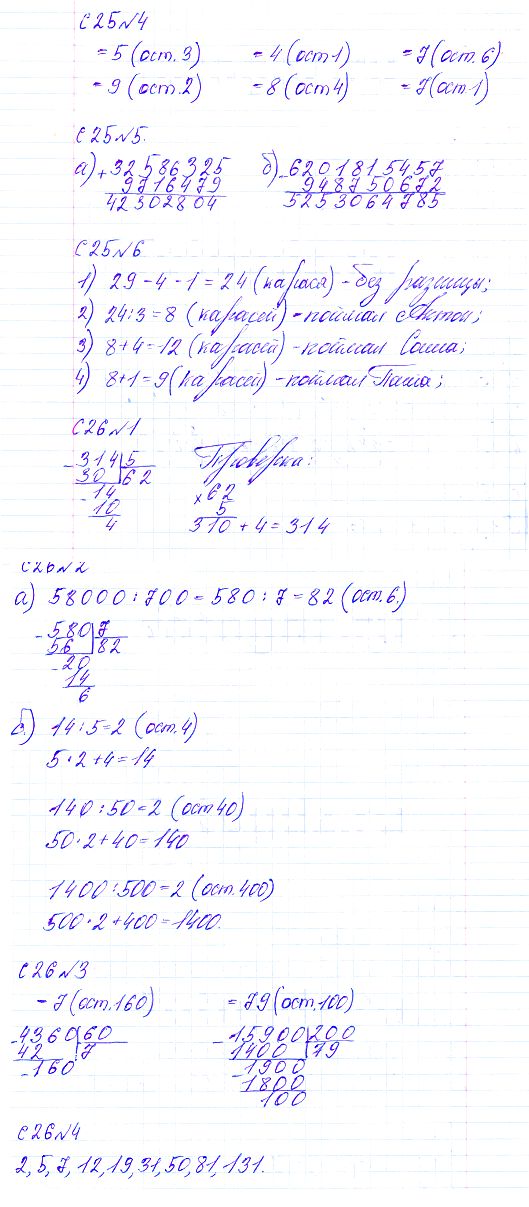 С25№4
= 5 (ост. 3) = 4 (ост 1) = 7 (ост. 6)
= 9 (ост. 2) = 8 (ост 4) = 7 (ост. 1)
С25№5.
а) + 32586325 б) - 6201815457
9716479 948750672
42302804 5253064785
С25№6
1) 29 - 4 - 1 = 24 (карася) - без разницы;
2) 24 : 3 = 8 (карасей) - поймал Антон;
3) 8 + 4 = 12 (карасей) - поймал Саша;
4) 8 + 1 = 9 (карасей) - поймал Паша;
С26№1
- 314 | 5 Проверка:
30 | 62
- 14 × 62
10 5
4 310 + 4 = 314
С26№2
а) 58000 : 700 = 580 : 7 = 82 (ост. 6)
- 580 | 7
56 | 82
- 20
14
6
б.) 14 : 5 = 2 (ост. 4)
5 · 2 + 4 = 14
140 : 50 = 2 (ост 40)
50 · 2 + 40 = 140
1400 : 500 = 2 (ост. 400)
500 · 2 + 400 = 1400.
С26№3
= 7 (ост. 160) = 79 (ост. 100)
- 4360 | 60 - 15900 | 200
42 | 7 1400 | 79
- 160 - 1900
1800
100
С26№4
2, 5, 7, 12, 19, 31, 50, 81, 131.